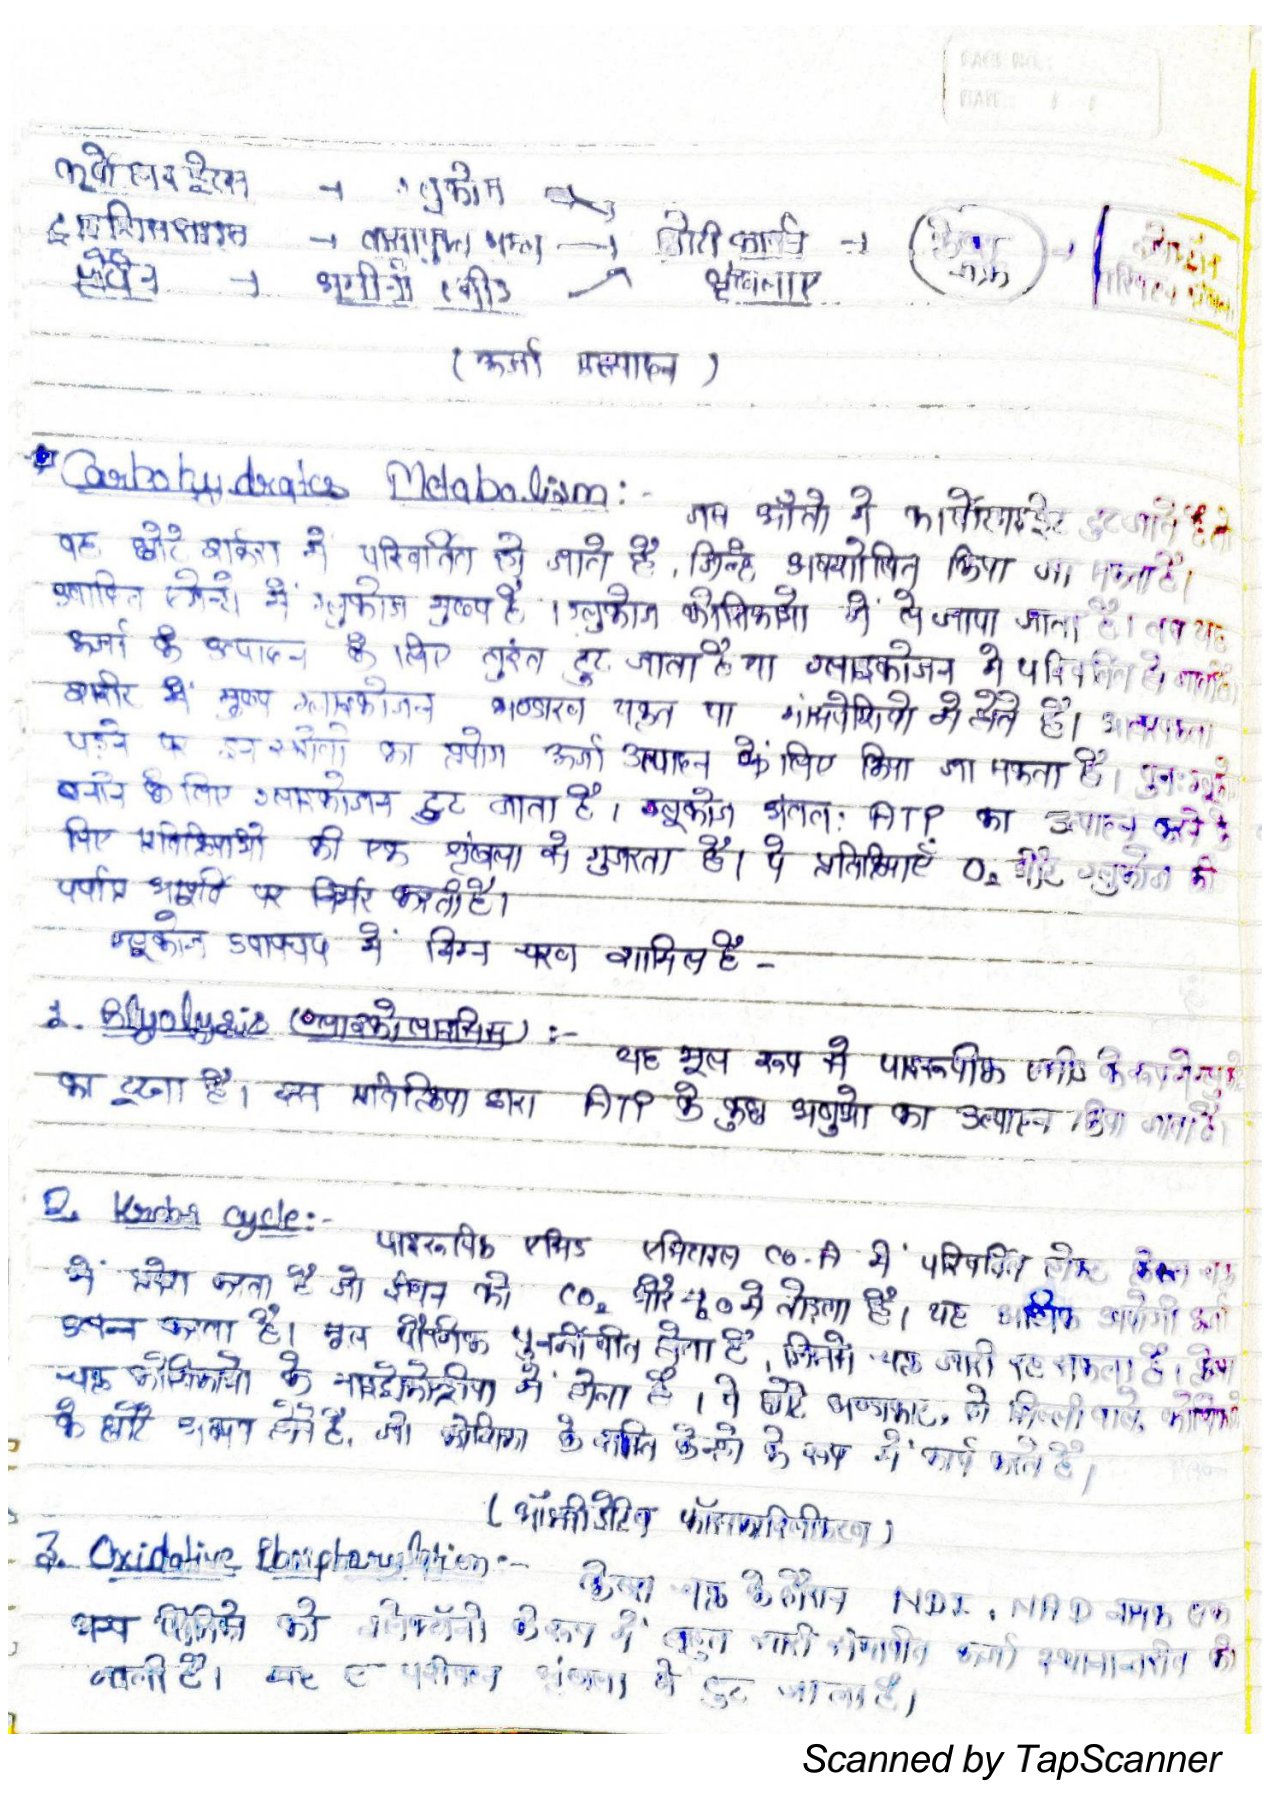 कार्बोहाइड्रेटस → ग्लुकोज
→ वसायुक्त अम्ल → छोटी कार्बन → (क्रेब्स चक्र) →
→ अमीनो एसीड श्रृंखलाए
(ऊर्जा उत्पादन)
Carbohydrates Metabolism:-
जब आँतो में कार्बोहाइड्रेट टुट जाते है तो
वह छोटे शर्करा में परिवर्तित हो जाते है, जिन्हे अवशोषित किया जा सकता है।
में ग्लुकोज मुख्य है। ग्लुकोज कोशिकाओ में ले जाया जाता है। तब यह
ऊर्जा के उत्पादन के लिए तुरंत टुट जाता है या ग्लाइकोजन में परिवर्तित हो जाता है।
शरीर में मुख्य ग्लाइकोजन भण्डारण यकृत या मांसपेशियो में होते है। आवश्यकता
पड़ने पर इन स्त्रोतो का प्रयोग ऊर्जा उत्पादन के लिए किया जा सकता है। पुनः ग्लुकोज
बनाने के लिए ग्लाइकोजन टुट जाता है। ग्लूकोज अंततः ATP का उत्पादन करने के
लिए प्रतिक्रियाओ की एक श्रृंखला से गुजरता है। ये प्रतिक्रियाएँ O₂ और ग्लुकोज की
पर्याप्त आपूर्ति पर निर्भर करती है।
ग्लूकोज उपापचय में निम्न चरण शामिल है -
1. Glyolysis (ग्लाइकोलायसिस) :-
यह मूल रूप से पाइरूवीक एसीड के रूप में ग्लुकोज
का टूटना है। इस प्रतिक्रिया द्वारा ATP के कुछ अणुओ का उत्पादन किया जाता है।
2. Krebs cycle:-
पाइरूविक एसिड एसिटाइल CO-A में परिवर्तित होकर क्रेब्स चक्र
में प्रवेश करता है जो ईंधन को CO₂ और H₂O में तोड़ता है। यह अधिक उपयोगी ऊर्जा
उत्पन्न करता है। मूल यौगिक पुनर्जीवीत होता है, जिससे चक्र जारी रह सकता है। क्रेब्स
चक्र कोशिकाओ के माइटोकोन्ड्रीया में होता है। ये छोटे अण्डाकार, दो झिल्ली वाले, कोशिका
के छोटे अवयव होते है, जो कोशिका के शक्ति केन्द्रो के रूप में कार्य करते है।
(ऑक्सीडेटिव फॉस्फोरिलीकरण)
3. Oxidative Phosphorylation:-
क्रेब्स चक्र के दौरान NAD नामक एक
अन्य यौगिक को इलेक्ट्रॉनो के रूप में बहुत सारी संभावीत ऊर्जा स्थानान्तरीत की
जाती है। यह e⁻ परिवहन श्रृंखला में टुट जाता है।
Scanned by TapScanner